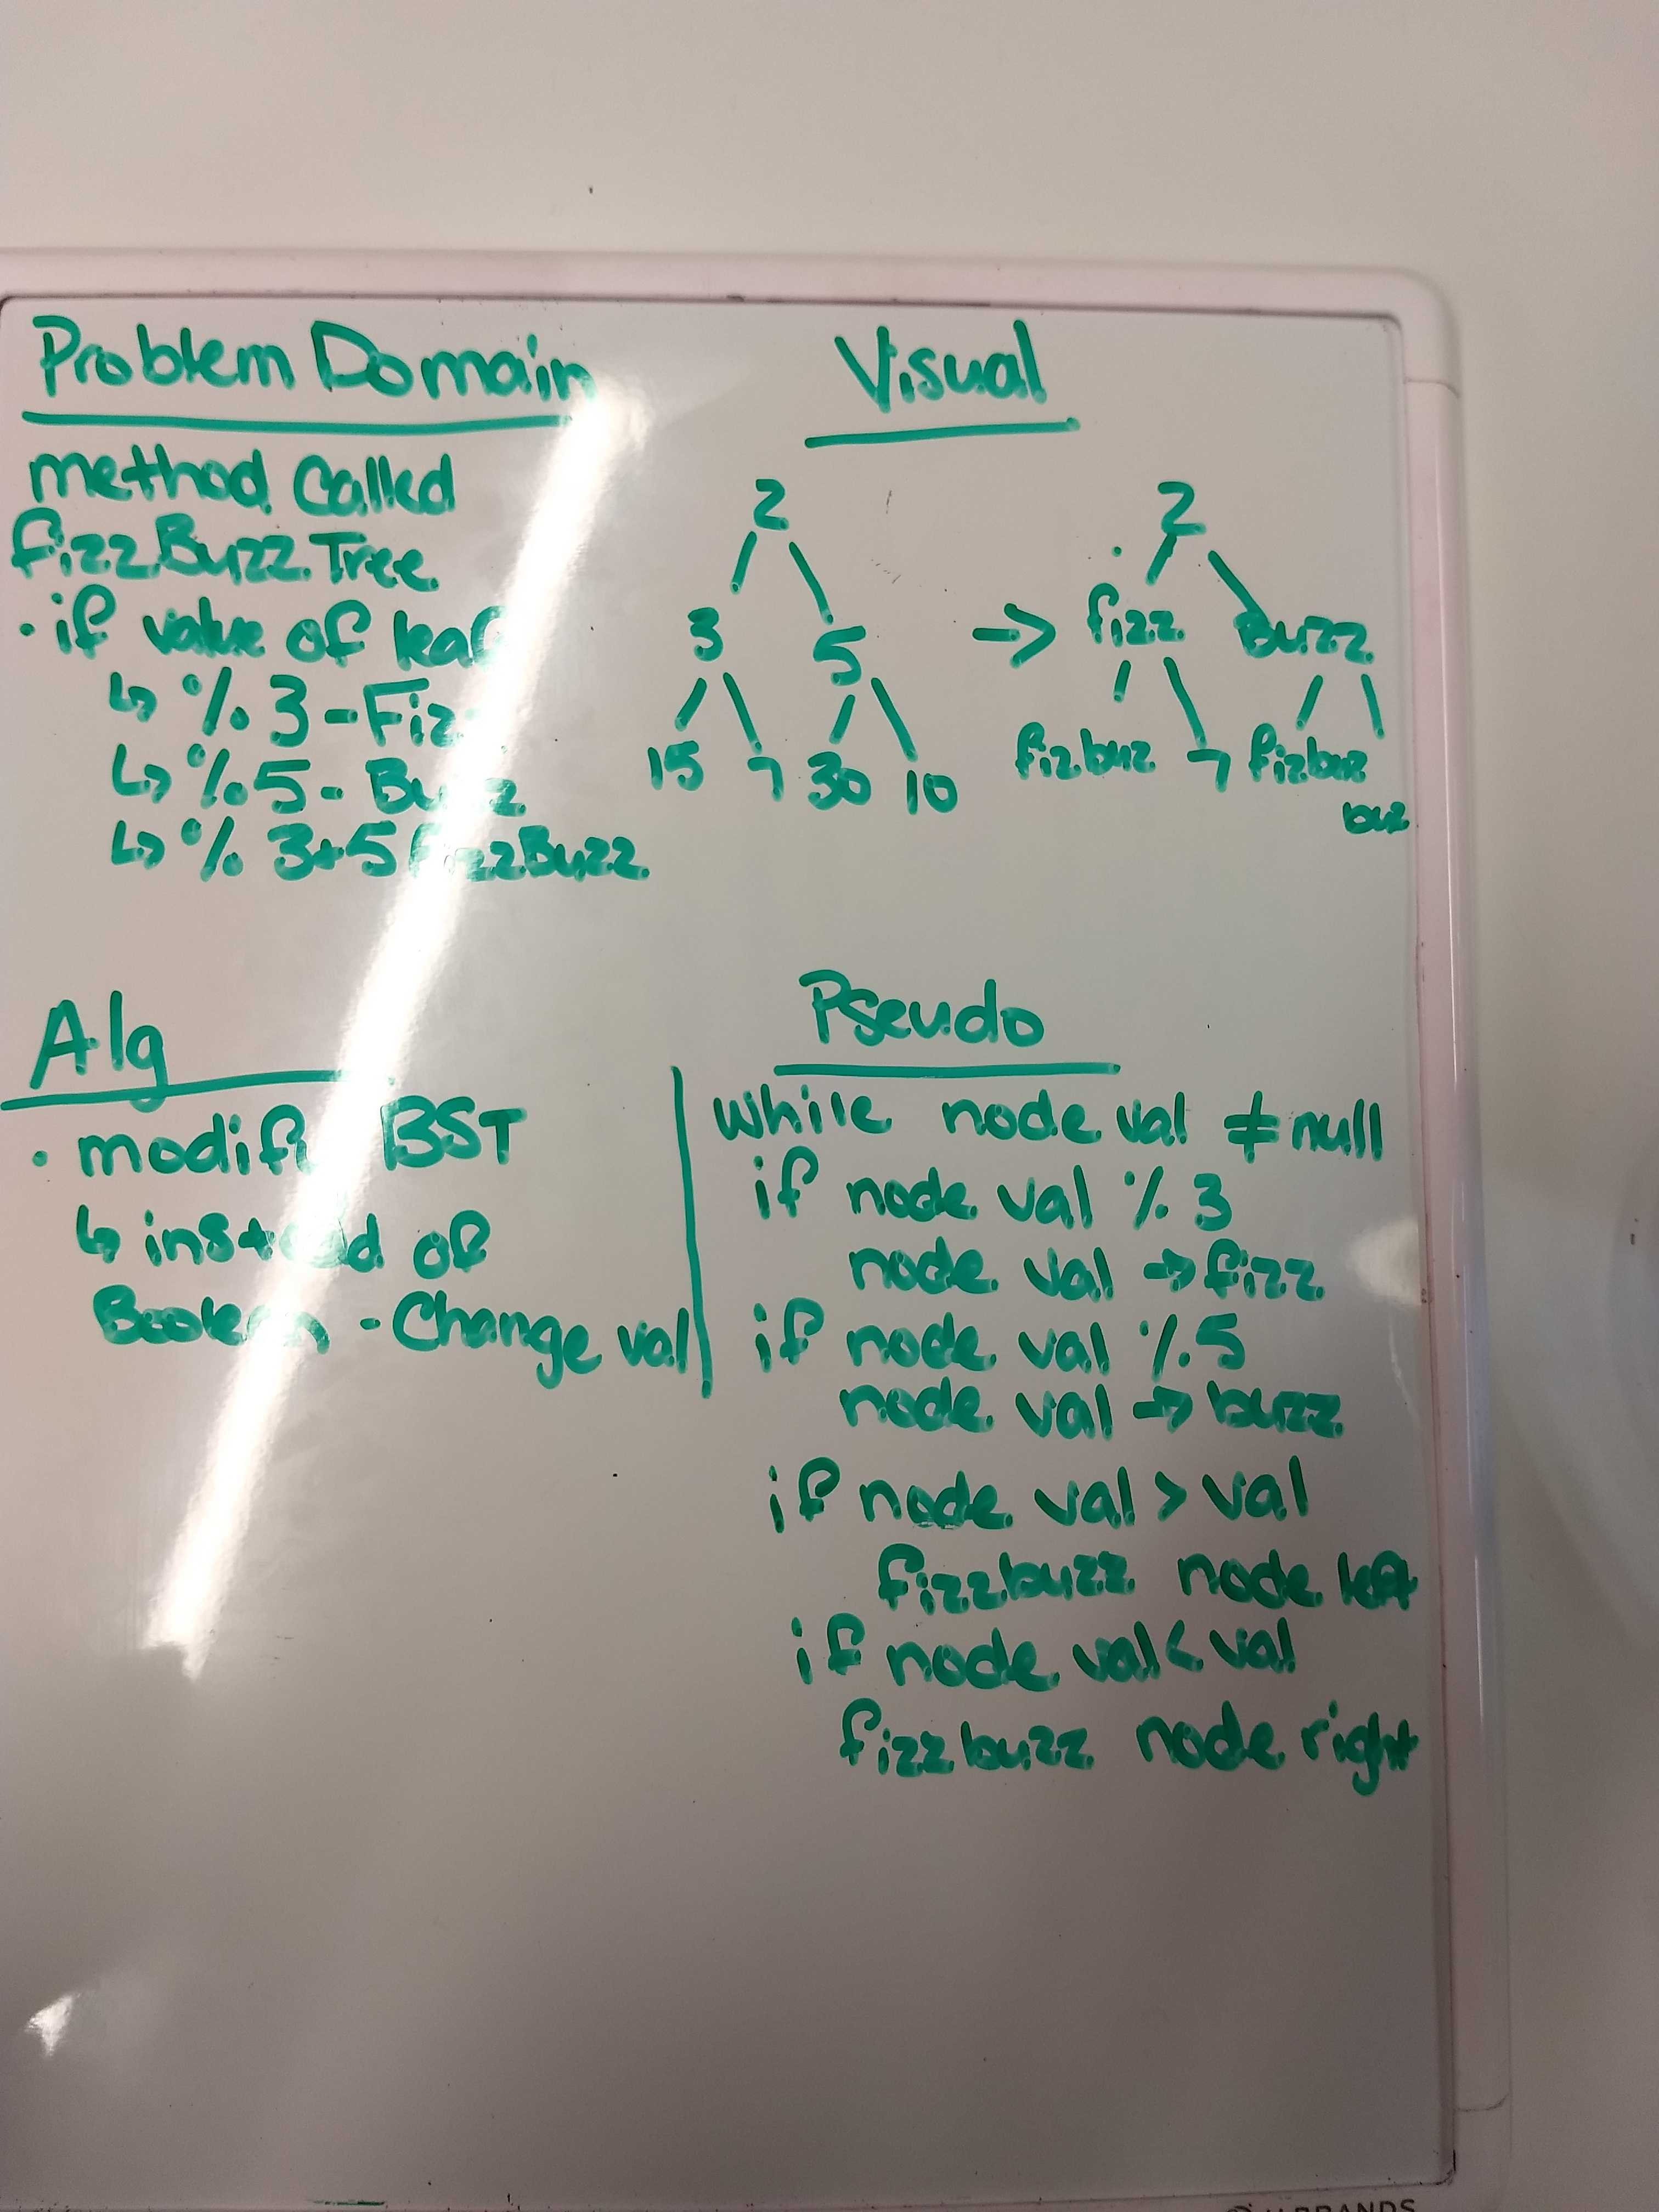 Problem Domain
method called
fizzBuzzTree
· if value of leaf
↳ % 3 - Fiz
↳ % 5 - Buzz
↳ % 3+5 FizzBuzz
Visual
2
3 5
15 7 30 10
→
2
fizz Buzz
fizbuz 7 fizbuz
buz
Alg
· modify BST
↳ instead of
Boolean - Change val
Pseudo
while node val ≠ null
if node val % 3
node val → fizz
if node val % 5
node val → buzz
if node val > val
fizzbuzz node left
if node val < val
fizzbuzz node right
BRANDS